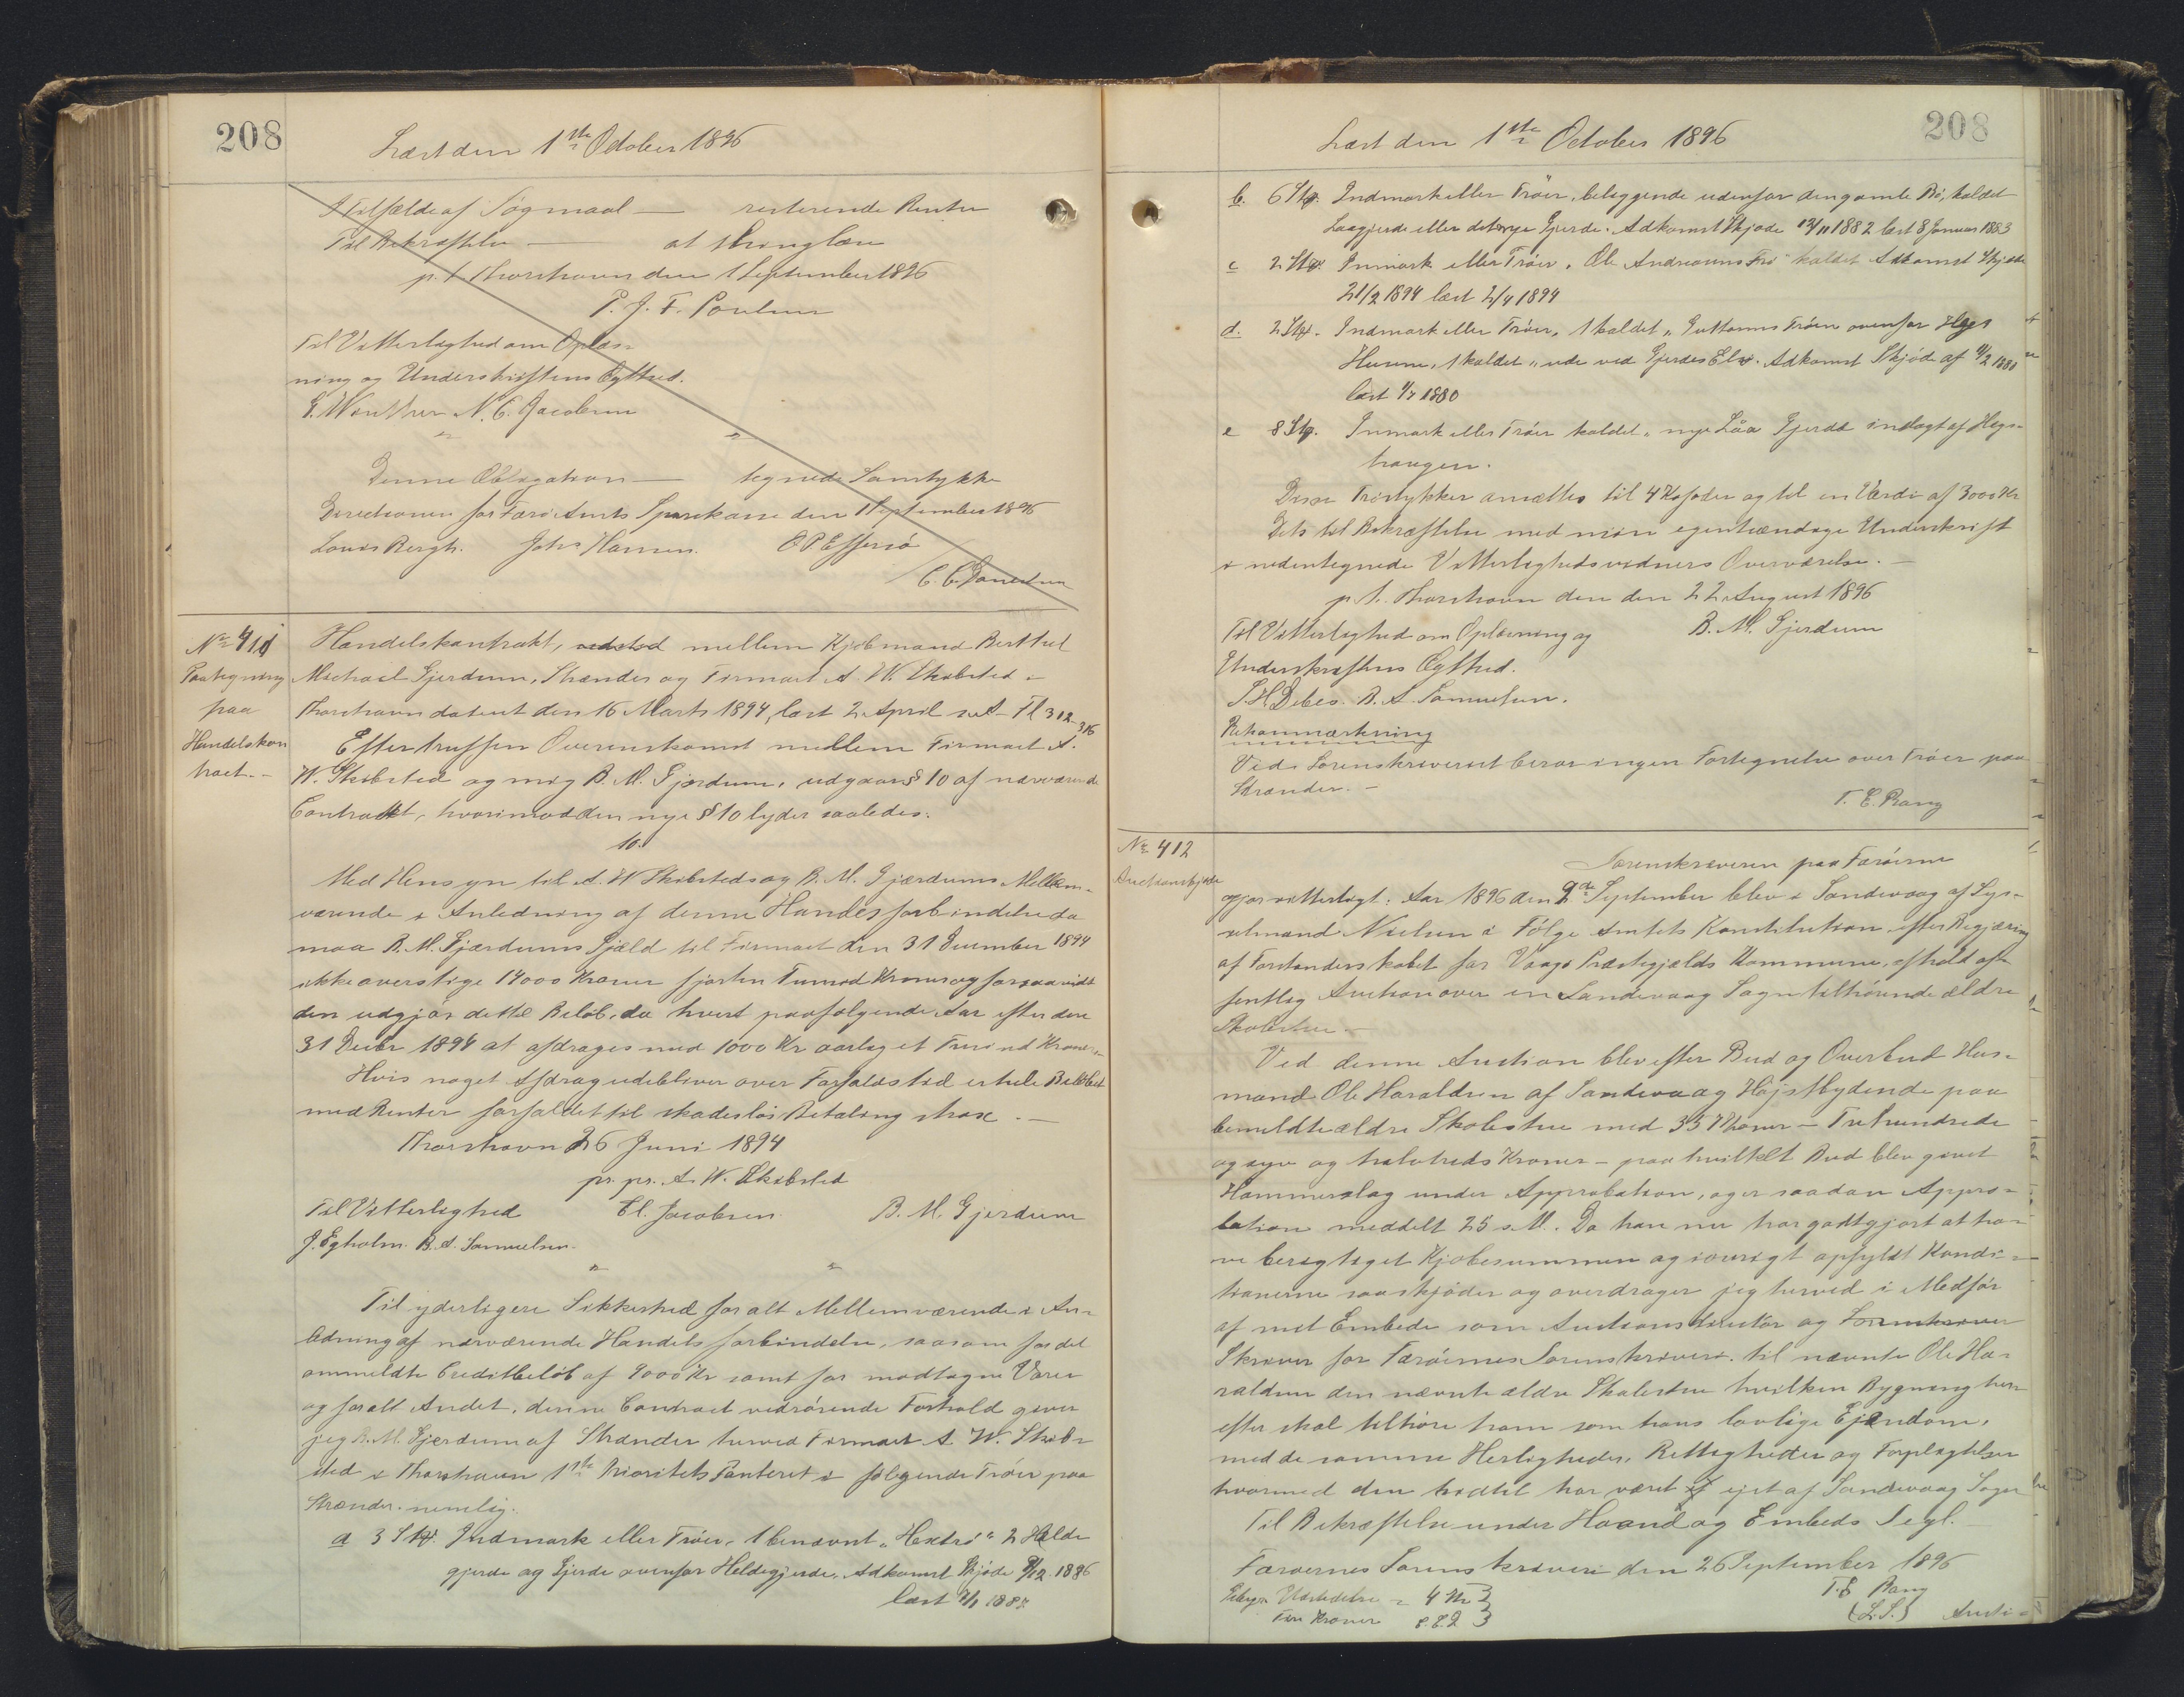 208
Læst den 1ste October 1896
I Tilfælde af Søgmaal — resterende Renter
Til Bekræftelse — at thinglæse
p. t. Thorshavn den 1 September 1896
P. J. F. Poulsen
Til Vitterlighed om Oplæs-
ning og Underskriftens Ægthed.
Winther N. C. Jacobsen
Denne Obligation — tegnede Samtykke
Directionen for Færø Amts Sparekasse den 1 September 1896
Louis Bergh. Johs Hansen. O P Effersø
C. C. Danielsen
No 411
Paategning
paa
Handelskon
tract.
Handelskontrakt, mellem Kjøbmand Berthel
Michael Gjerdum, Strænder og Firmaet A. W. Skibsted i
Thorshavn dateret den 16 Marts 1894, læst 2 April s. A. Fl 312-316
Efter truffen Overenskomst mellem Firmaet A.
W. Skibsted og mig B. M. Gjerdum, udgaar § 10 af nærværende
Contrackt, hvorimod den nye § 10 lyder saaledes:
10.
Med Hensyn til A. W Skibsteds og B. M. Gjærdums Mellem-
værende i Anledning af denne Handesforbindelse da
maa B. M. Gjærdums Gjæld til Firmaet den 31 December 1894
ikke overstige 14000 Kroner fjorten Tusind Kroner og forsaavidt
den udgjør dette Beløb, da hvert paafølgende Aar efter den
31 Decbr 1894 at afdrages med 1000 Kr aarlig et Tusind Kroner
Hvis noget Afdrag udebliver over Forfaldstid er hele Beløbet
med Renter forfaldet til skadesløs Betaling strax. —
Thorshavn 26 Juni 1894
pr. pr. A. W. Skibsted
Til Vitterlighed Cl. Jacobsen B. M. Gjerdum
J. Egholm. B. A. Samuelsen.
Til yderligere Sikkerhed for alt Mellemværende i An-
ledning af nærværende Handelsforbindelse, saasom for det
ommeldte Creditbeløb af 9000 Kr samt for modtagne Varer
og for alt Andet, denne Contract vedrørende Forhold giver
jeg B. M. Gjerdum af Strænder herved Firmaet A. W. Skib-
sted i Thorshavn 1ste Prioritets Panteret i følgende Trøer paa
Strænder. nemlig.
a 3 Stk. Indmark eller Trøer, 1 benævnt "Hextrø" 2 Helde
gjerde og Gjerde ovenfor Heldegjerde. Adkomst Skjøde 1886
læst 1887.
208
Læst den 1ste October 1896
b. 6 Stk. Indmark eller Trøer, beliggende udenfor den gamle Bø, kaldet
Laagjerde eller det nye Gjerde. Adkomst Skjøde 12/11 1882 læst 8 Januar 1883
c 2 Stk. Inmark eller Trøer, Ole Andreasens Trø" kaldet Adkomst Skjøde
21/2 1894 læst 2/4 1894
d. 2 Stk. Indmark eller Trøer, 1 kaldet "Guttorms Trøen ovenfor Høgs
Husene, 1 kaldet "ude ved Gjerdes Elv. Adkomst Skjøde af 11/2 1880
læst 1/7 1880
e 8 Stk. Inmark eller Trøer kaldet "nye Låa Gjerde indlagt af Høgs-
haugen.
Disse Trøstykker ansættes til 4 Kofoder og til en Værdi af 3000 Kr
Dets til Bekræftelse med min egenhændige Underskrift
i nedentegnede Vitterlighedsvidners Overværelse. —
p. t. Thorshavn den den 22 August 1896
Til Vitterlighed om Oplæsning og B. M. Gjerdum
Underskriftens Ægthed.
S. H. Debes. B. A. Samuelsen.
Retsanmærkning
Ved Sorenskriveriet beror ingen Fortegnelse over Trøer paa
Strænder. —
T. E. Bang
No 412
Auctionskjøde
Sorenskriveren paa Færøerne
gjør vitterligt: Aar 1896 den 9de September blev i Sandevaag af Sys-
selmand Nielsen i Følge Amtets Konstitution efter Begjæring
af Forstanderskabet for Vaagø Præstegjælds Kommune, afholdt of-
fentlig Auction over en Sandevaag Sogn tilhørende ældre
Skolestue. —
Ved denne Auction blev efter Bud og Overbud Hus-
mand Ole Haraldsen af Sandevaag Højstbydende paa
bemeldte ældre Skolestue med 357 Kroner — Trehundrede
og syv og halvtreds Kroner — paa hvilket Bud blev givet
Hammerslag under Approbation, og er saadan Appro-
bation meddelt 25 s. M. Da han nu har godtgjort at ha-
ve berigtiget Kjøbesummen og iøvrigt opfyldt Kondi-
tionerne saa skjøder og overdrager jeg herved i Medfør
af mit Embede som Auctionsdirektør og Sorenskriver
Skriver for Færøernes Sorenskriveri. til nævnte Ole Ha-
raldsen den nævnte ældre Skolestue hvilken Bygning her-
efter skal tilhøre ham som hans lovlige Ejendom,
med de samme Herligheder, Rettigheder og Forpligtelser
hvormed den hidtil har været ejet af Sandevaag Sogn
Til Bekræftelse under Haand og Embeds Segl.
Færoernes Sorenskriveri den 26 September 1896
Gebyr Udstedelse = 4 Kr T. E Bang
Fire Kroner T. E. B (L. S.) Aucti-